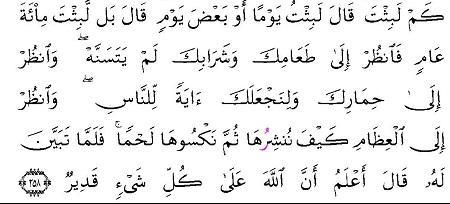 كَمْ لَبِثْتَ قَالَ لَبِثْتُ يَوْمًا أَوْ بَعْضَ يَوْمٍ قَالَ بَل لَّبِثْتَ مِاْئَةَ
عَامٍ فَٱنظُرْ إِلَىٰ طَعَامِكَ وَشَرَابِكَ لَمْ يَتَسَنَّهْۖ وَٱنظُرْ
إِلَىٰ حِمَارِكَ وَلِنَجْعَلَكَ ءَايَةً لِّلنَّاسِۖ وَٱنظُرْ
إِلَى ٱلْعِظَامِ كَيْفَ نُنشِرُهَا ثُمَّ نَكْسُوهَا لَحْمًاۚ فَلَمَّا تَبَيَّنَ
لَهُۥ قَالَ أَعْلَمُ أَنَّ ٱللَّهَ عَلَىٰ كُلِّ شَىْءٍ قَدِيرٌ ٢٥٨